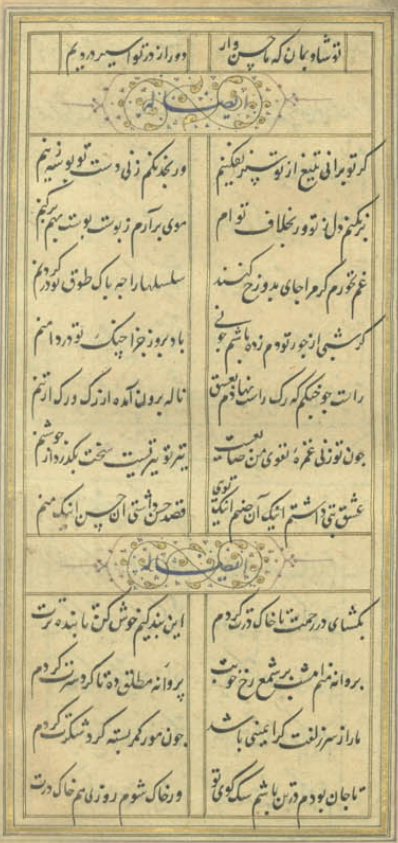 تو شاد بمان که ما چسن وار دور از در تو اسیر دردیم
ایضاله
کر تو برانی بتیغ از تو سپر نفکنیم ور بخدنکم زنی دست تو بوسه زنیم
برکنم دل ز تو ور بخلاف توام موی برآرم ز پوست پوست بهم برکنم
غم نخورم کر مرا جای بدوزخ کنند سلسلها را چه باک طوق تو در کردنم
کر شبی از جور تو دم زده باشم چونی باد بروز جزا چنک تو در دامنم
راست چو چنکم که رک راست نهادم بعشق ناله برون آمده از رک و رک از تنم
چون تو زنی غمزهٔ تقوی من ضایعست تیر تو تیریست سخت بکذرد از جوشنم
عشق بتی داشتم اینک آن صنم اینک تویی قصد حسن داشتی آن حسن اینک منم
ایضاله
بکشای در رحمت تا خاک درت کردم این بندکیم خوش کن تا بنده ترت
پروانه منم امشب بر شمع رخ خوبت پروانه مطلق ده تا کرد سرت کردم
ما را ز سر زلفت کر ایمنی باشد چون مور کمر بسته کرد شکرت کردم
تا جان بودم در تن باشم سک کوی تو ور خاک شوم روزی هم خاک درت